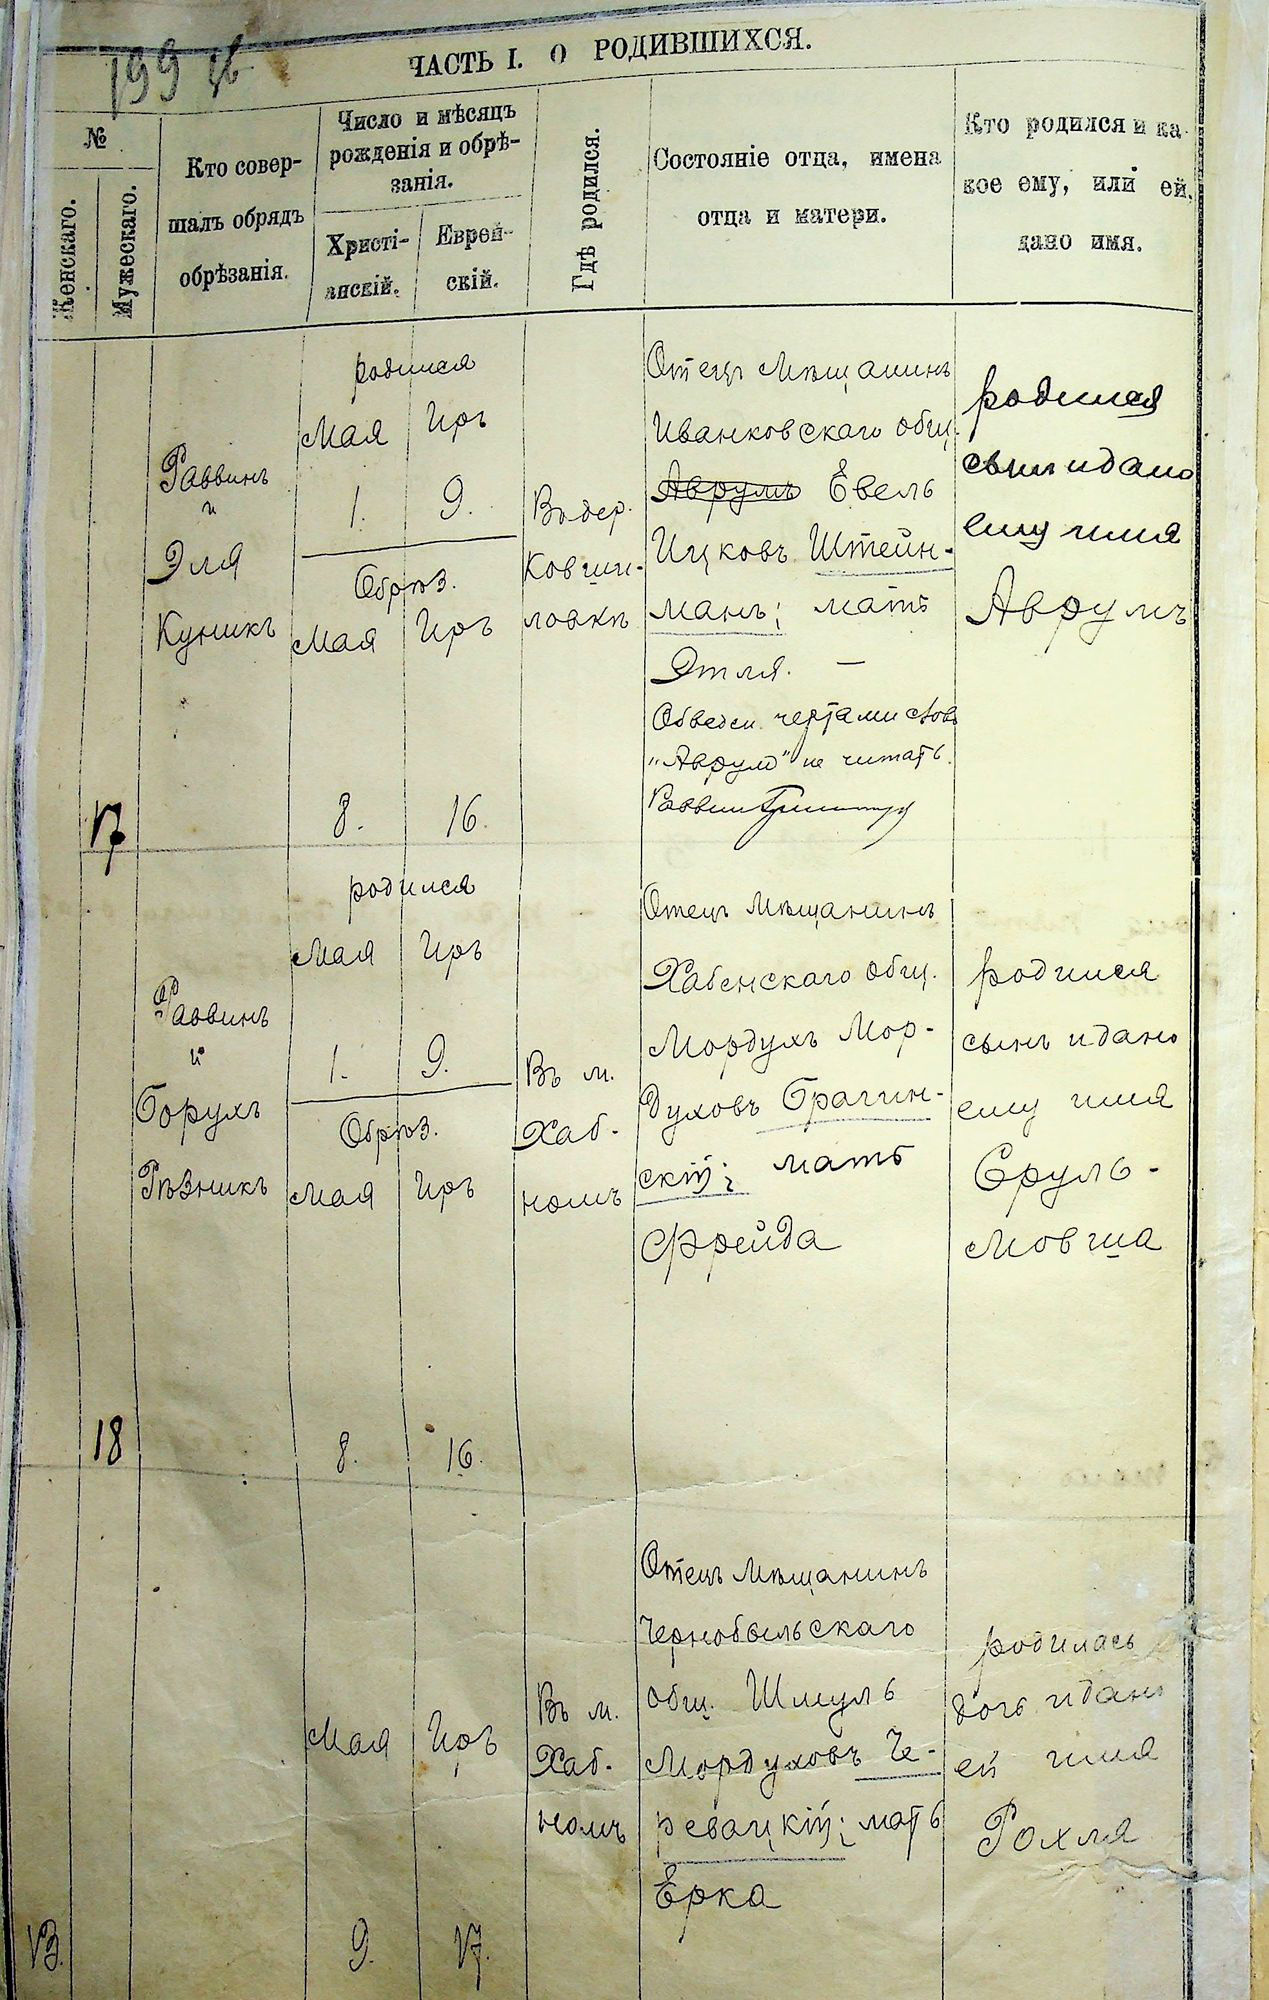 199 об
ЧАСТЬ I. О РОДИВШИХСЯ.
№
Женскаго.
Мужескаго.
Кто совер-
шалъ обрядъ
обрѣзанія.
Число и мѣсяцъ
рожденія и обрѣ-
занія.
Христі-
анскій.
Еврей-
скій.
Гдѣ родился.
Состояніе отца, имена
отца и матери.
Кто родился и ка-
кое ему, или ей,
дано имя.
17
Раввинъ
и
Эля
Куникъ
родился
Мая Іръ
1. 9.
Обрѣз.
Мая Іръ
8. 16.
Въ дер.
Ковши-
ловкѣ
Отецъ Мѣщанинъ
Иванковскаго общ.
Аврумъ Евель
Ицковъ Штейн-
манъ; мать
Этля. —
Обведен. чертами слов
"Аврумъ" не читать.
Раввин
родился
сынъ и дано
ему имя
Аврумъ
18
Раввинъ
и
Борухъ
Рѣзникъ
родился
Мая Іръ
1. 9.
Обрѣз.
Мая Іръ
8. 16.
Въ м.
Хаб-
номъ
Отецъ Мѣщанинъ
Хабенскаго общ.
Мордухъ Мор-
духовъ Брагин-
скій; мать
Фрейда
родился
сынъ и дано
ему имя
Сруль-
Мовша
13.
Мая Іръ
9. 17.
Въ м.
Хаб-
номъ
Отецъ Мѣщанинъ
Чернобыльскаго
общ. Шмуль
Мордуховъ Че-
ревацкій; мать
Ерка
родилась
дочь и дано
ей имя
Рохля